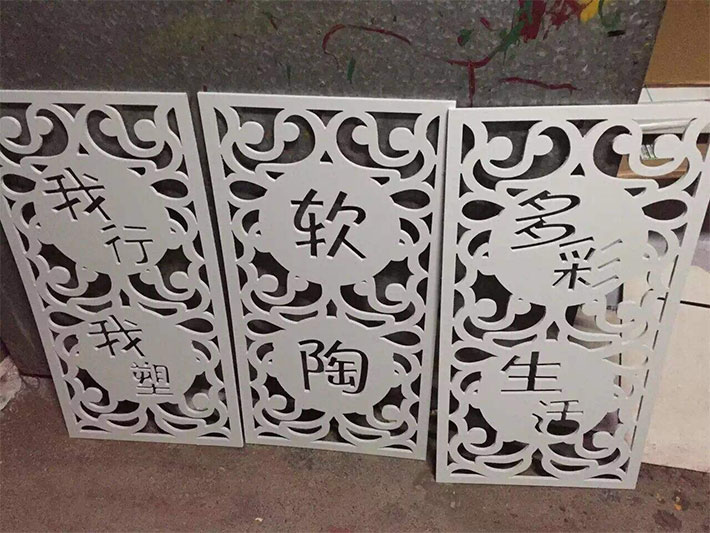 我行
我塑
软
陶
多彩
生活